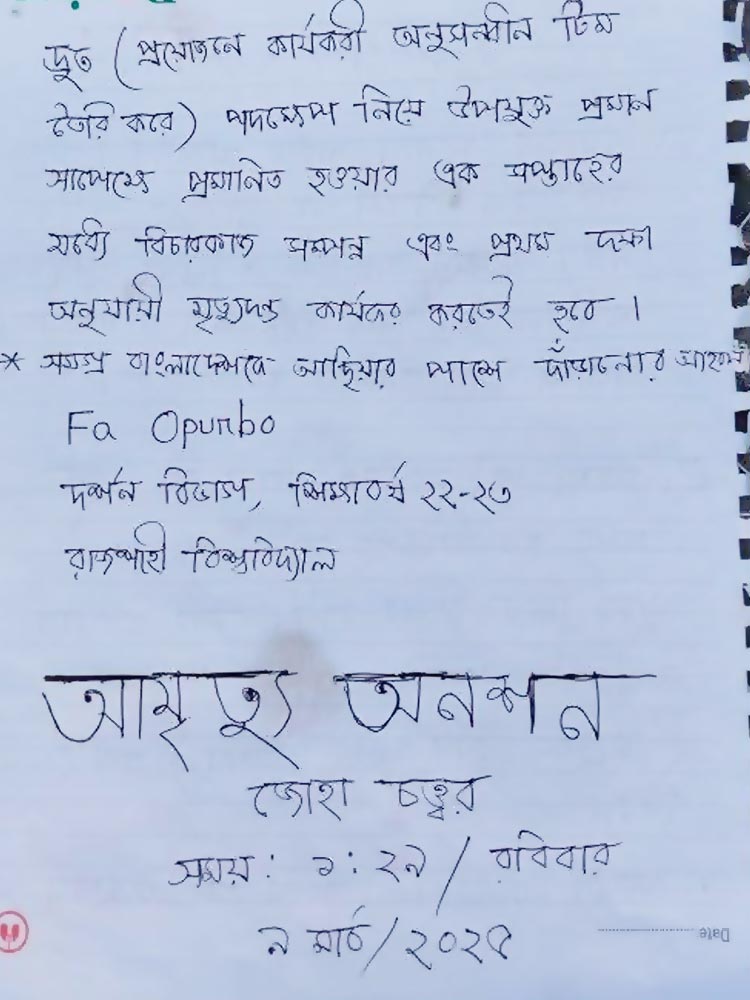 দ্রুত (প্রয়োজনে কার্যকরী অনুসন্ধান টিম
তৈরি করে) পদক্ষেপ নিয়ে উপযুক্ত প্রমান
সাপেক্ষে প্রমানিত হওয়ার এক সপ্তাহের
মধ্যে বিচারকাজ সম্পন্ন এবং প্রথম দফা
অনুযায়ী মৃত্যুদন্ড কার্যকর করতেই হবে।
* সমগ্র বাংলাদেশকে আছিয়ার পাশে দাঁড়ানোর আহ্বান
Fa Opurbo
দর্শন বিভাগ, শিক্ষাবর্ষ ২২-২৩
রাজশাহী বিশ্ববিদ্যাল
আমৃত্যু অনশন
জোহা চত্ত্বর
সময়: ১:২৯/ রবিবার
৯ মার্চ/২০২৫
Date